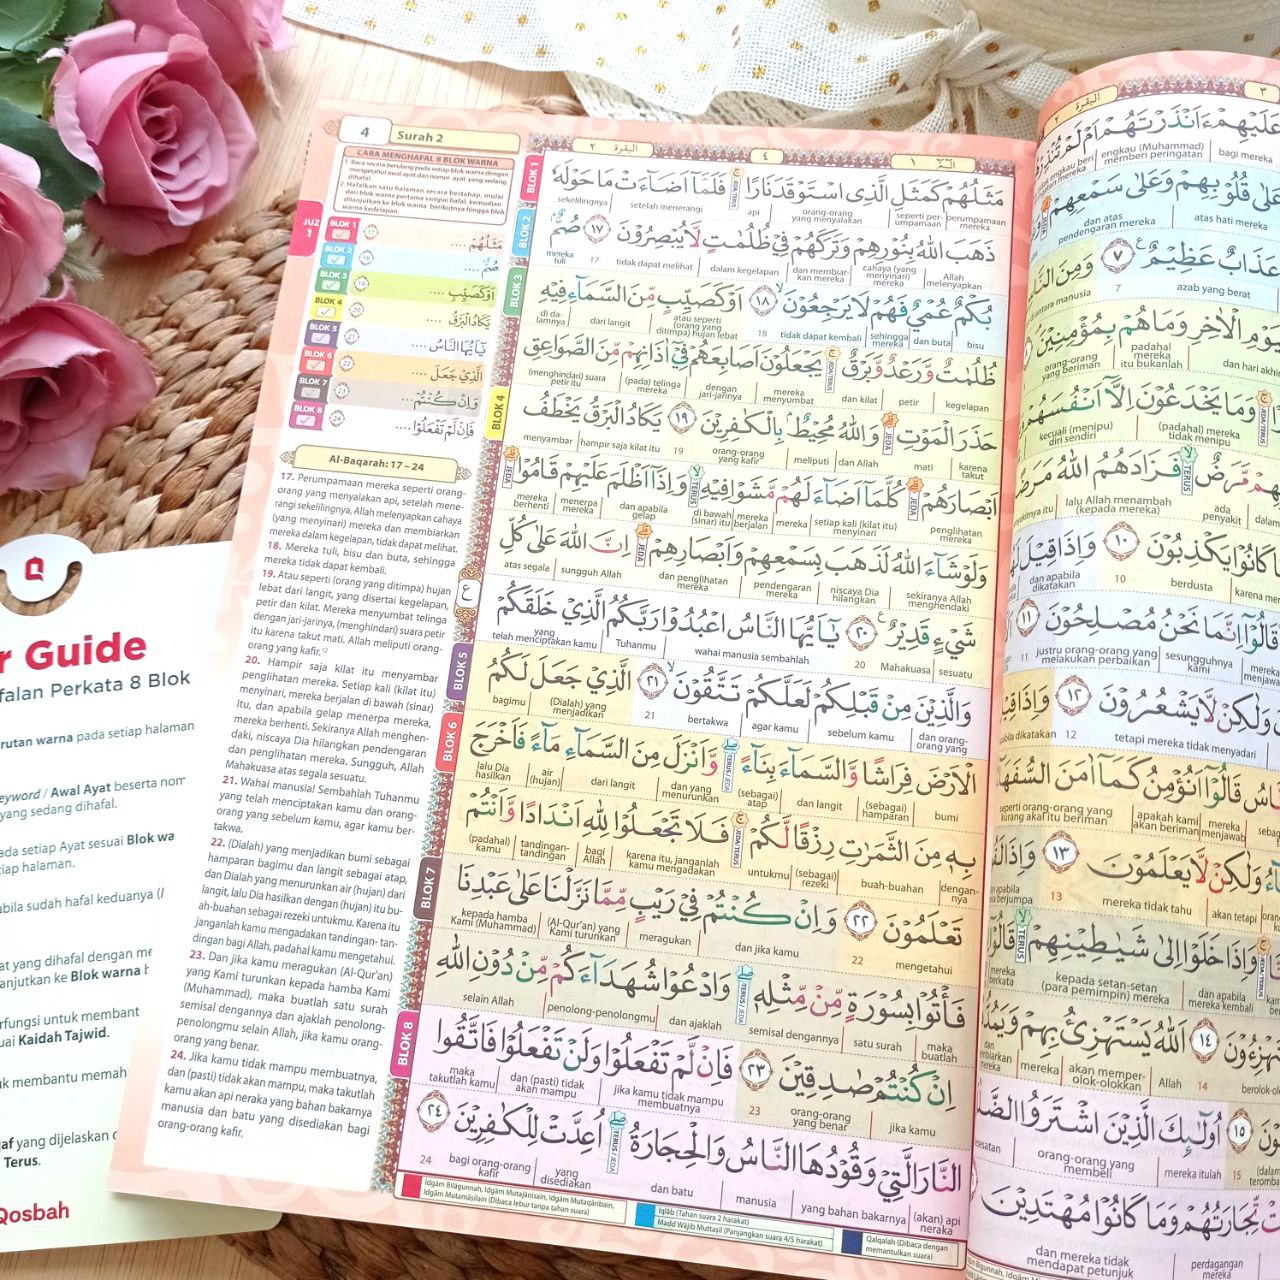 4
Surah 2
CARA MENGHAFAL 8 BLOK WARNA
1. Baca secara berulang pada setiap blok warna dengan
mengetahui awal ayat dan nomor ayat yang sedang
dihafal.
2. Hafalkan satu halaman secara bertahap, mulai
dari blok warna pertama sampai hafal, kemudian
dilanjutkan ke blok warna berikutnya hingga blok
warna kedelapan.
JUZ
1
BLOK 1
مَثَلُهُمْ ....
BLOK 2
صُمٌّ ....
BLOK 3
اَوْ كَصَيِّبٍ ....
BLOK 4
يَكَادُ الْبَرْقُ ....
BLOK 5
يٰٓاَيُّهَا النَّاسُ ....
BLOK 6
الَّذِيْ جَعَلَ ....
BLOK 7
وَاِنْ كُنْتُمْ....
BLOK 8
فَاِنْ لَّمْ تَفْعَلُوْا....
Al-Baqarah: 17 – 24
17. Perumpamaan mereka seperti orang-
orang yang menyalakan api, setelah mene-
rangi sekelilingnya, Allah melenyapkan cahaya
(yang menyinari) mereka dan membiarkan
mereka dalam kegelapan, tidak dapat melihat.
18. Mereka tuli, bisu dan buta, sehingga
mereka tidak dapat kembali.
19. Atau seperti (orang yang ditimpa) hujan
lebat dari langit, yang disertai kegelapan,
petir dan kilat. Mereka menyumbat telinga
dengan jari-jarinya, (menghindari) suara petir
itu karena takut mati. Allah meliputi orang-
orang yang kafir.
20. Hampir saja kilat itu menyambar
penglihatan mereka. Setiap kali (kilat itu)
menyinari, mereka berjalan di bawah (sinar)
itu, dan apabila gelap menerpa mereka,
mereka berhenti. Sekiranya Allah menghen-
daki, niscaya Dia hilangkan pendengaran
dan penglihatan mereka. Sungguh, Allah
Mahakuasa atas segala sesuatu.
21. Wahai manusia! Sembahlah Tuhanmu
yang telah menciptakan kamu dan orang-
orang yang sebelum kamu, agar kamu ber-
takwa.
22. (Dialah) yang menjadikan bumi sebagai
hamparan bagimu dan langit sebagai atap,
dan Dialah yang menurunkan air (hujan) dari
langit, lalu Dia hasilkan dengan (hujan) itu bu-
ah-buahan sebagai rezeki untukmu. Karena itu
janganlah kamu mengadakan tandingan-tan-
dingan bagi Allah, padahal kamu mengetahui.
23. Dan jika kamu meragukan (Al-Qur'an)
yang Kami turunkan kepada hamba Kami
(Muhammad), maka buatlah satu surah
semisal dengannya dan ajaklah penolong-
penolongmu selain Allah, jika kamu orang-
orang yang benar.
24. Jika kamu tidak mampu membuatnya,
dan (pasti) tidak akan mampu, maka takutlah
kamu akan api neraka yang bahan bakarnya
manusia dan batu yang disediakan bagi
orang-orang kafir.
البقرة ٢
٤
الۤمّۤ ١
BLOK 1
مَثَلُهُمْ كَمَثَلِ الَّذِى اسْتَوْقَدَ نَارًا فَلَمَّآ اَضَاۤءَتْ مَا حَوْلَهٗ
perumpamaan mereka | seperti per-umpamaan | orang-orang yang menyalakan | api | setelah menerangi | sekelilingnya
BLOK 2
ذَهَبَ اللّٰهُ بِنُوْرِهِمْ وَتَرَكَهُمْ فِيْ ظُلُمٰتٍ لَّا يُبْصِرُوْنَ ١٧ صُمٌّ
Allah melenyapkan | cahaya (yang menyinari) mereka | dan membiar-kan mereka | dalam kegelapan | tidak dapat melihat | 17 | mereka tuli
BLOK 3
بُكْمٌ عُمْيٌ فَهُمْ لَا يَرْجِعُوْنَ ١٨ اَوْ كَصَيِّبٍ مِّنَ السَّمَاۤءِ فِيْهِ
bisu | dan buta | sehingga mereka | tidak dapat kembali | 18 | atau seperti (orang yang ditimpa) hujan lebat | dari langit | di da-lamnya
ظُلُمٰتٌ وَّرَعْدٌ وَّبَرْقٌ يَجْعَلُوْنَ اَصَابِعَهُمْ فِيْٓ اٰذَانِهِمْ مِّنَ الصَّوَاعِقِ
kegelapan | petir | dan kilat | mereka menyumbat | dengan jari-jarinya | (pada) telinga mereka | (menghindari) suara petir itu
BLOK 4
حَذَرَ الْمَوْتِ وَاللّٰهُ مُحِيْطٌ بِالْكٰفِرِيْنَ ١٩ يَكَادُ الْبَرْقُ يَخْطَفُ
karena takut | mati | dan Allah | meliputi | orang-orang yang kafir | 19 | hampir saja kilat itu | menyambar
اَبْصَارَهُمْ كُلَّمَآ اَضَاۤءَ لَهُمْ مَّشَوْا فِيْهِ وَاِذَآ اَظْلَمَ عَلَيْهِمْ قَامُوْا
penglihatan mereka | setiap kali (kilat itu) menyinari | mereka | mereka berjalan | di bawah (sinar) itu | dan apabila gelap | menerpa mereka | mereka berhenti
وَلَوْ شَاۤءَ اللّٰهُ لَذَهَبَ بِسَمْعِهِمْ وَاَبْصَارِهِمْ اِنَّ اللّٰهَ عَلٰى كُلِّ
sekiranya Allah menghendaki | niscaya Dia hilangkan | pendengaran mereka | dan penglihatan mereka | sungguh Allah | atas segala
شَيْءٍ قَدِيْرٌ ٢٠ يٰٓاَيُّهَا النَّاسُ اعْبُدُوْا رَبَّكُمُ الَّذِيْ خَلَقَكُمْ
sesuatu | Mahakuasa | 20 | wahai manusia sembahlah | Tuhanmu | yang telah menciptakan kamu
BLOK 5
وَالَّذِيْنَ مِنْ قَبْلِكُمْ لَعَلَّكُمْ تَتَّقُوْنَ ٢١ الَّذِيْ جَعَلَ لَكُمُ
dan orang-orang yang | sebelum kamu | agar kamu | bertakwa | 21 | (Dialah) yang menjadikan | bagimu
BLOK 6
الْاَرْضَ فِرَاشًا وَّالسَّمَاۤءَ بِنَاۤءً وَّاَنْزَلَ مِنَ السَّمَاۤءِ مَاۤءً فَاَخْرَجَ
bumi | (sebagai) hamparan | dan langit | (sebagai) atap | dan yang menurunkan | dari langit | air (hujan) | lalu Dia hasilkan
بِهٖ مِنَ الثَّمَرٰتِ رِزْقًا لَّكُمْ فَلَا تَجْعَلُوْا لِلّٰهِ اَنْدَادًا وَّاَنْتُمْ
dengan-nya | buah-buahan | (sebagai) rezeki | untukmu | karena itu, janganlah kamu mengadakan | bagi Allah | tandingan-tandingan | (padahal) kamu
BLOK 7
تَعْلَمُوْنَ ٢٢ وَاِنْ كُنْتُمْ فِيْ رَيْبٍ مِّمَّا نَزَّلْنَا عَلٰى عَبْدِنَا
mengetahui | 22 | dan jika kamu | meragukan | (Al-Qur'an) yang Kami turunkan | kepada hamba Kami (Muhammad)
فَأْتُوْا بِسُوْرَةٍ مِّنْ مِّثْلِهٖ وَادْعُوْا شُهَدَاۤءَكُمْ مِّنْ دُوْنِ اللّٰهِ
maka buatlah | satu surah | semisal dengannya | dan ajaklah | penolong-penolongmu | selain Allah
BLOK 8
اِنْ كُنْتُمْ صٰدِقِيْنَ ٢٣ فَاِنْ لَّمْ تَفْعَلُوْا وَلَنْ تَفْعَلُوْا فَاتَّقُوا
jika kamu | orang-orang yang benar | 23 | jika kamu tidak mampu membuatnya | dan (pasti) tidak akan mampu | maka takutlah kamu
النَّارَ الَّتِيْ وَقُوْدُهَا النَّاسُ وَالْحِجَارَةُ اُعِدَّتْ لِلْكٰفِرِيْنَ ٢٤
(akan) api neraka | yang bahan bakarnya | manusia | dan batu | yang disediakan | bagi orang-orang kafir | 24
Idgām Bilāgunnah, Idgām Mutajānisain, Idgām Mutaqāribain,
Idgām Mutamāṡilain (Dibaca lebur tanpa tahan suara)
Iqlāb (Tahan suara 2 harakat)
Madd Wājib Muttaṣil (Panjangkan suara 4/5 harakat)
Qalqalah (Dibaca dengan
memantulkan suara)
البقرة ٢
٣
عَلَيْهِمْ ءَاَنْذَرْتَهُمْ اَمْ لَمْ
bagi mereka | engkau (Muhammad) memberi peringatan
قُلُوْبِهِمْ وَعَلٰى سَمْعِهِمْ
atas hati mereka | dan atas pendengaran mereka
عَذَابٌ عَظِيْمٌ ٧ وَمِنَ
azab yang berat | 7 | antara manusia
الْاٰخِرِ وَمَا هُمْ بِمُؤْمِنِيْنَ
dan hari akhir | padahal mereka itu bukanlah | orang-orang yang beriman
وَمَا يَخْدَعُوْنَ اِلَّآ اَنْفُسَهُمْ
(padahal) mereka tidak menipu | kecuali (menipu) diri sendiri
مَّرَضٌ فَزَادَهُمُ اللّٰهُ
ada penyakit | lalu Allah menambah (kepada mereka)
كَانُوْا يَكْذِبُوْنَ ١٠ وَاِذَا قِيْلَ
berdusta | 10 | dan apabila dikatakan
قَالُوْٓا اِنَّمَا نَحْنُ مُصْلِحُوْنَ ١١
sesungguhnya kami | justru orang-orang yang melakukan perbaikan | 11
وَلٰكِنْ لَّا يَشْعُرُوْنَ ١٢ وَاِذَا
tetapi mereka tidak menyadari | 12 | dikatakan
قَالُوْٓا اَنُؤْمِنُ كَمَآ اٰمَنَ
mereka menjawab | apakah kami akan beriman | seperti orang-orang yang kurang akal itu beriman
وَلٰكِنْ لَّا يَعْلَمُوْنَ ١٣ وَاِذَا
akan tetapi | mereka tidak tahu | 13
وَاِذَا خَلَوْا اِلٰى شَيٰطِيْنِهِمْ
dan apabila mereka kembali | kepada setan-setan (para pemimpin) mereka
١٤ اَللّٰهُ يَسْتَهْزِئُ بِهِمْ
14 | Allah | akan memper-olok-olokkan | mereka
١٥ اُولٰۤىِٕكَ الَّذِيْنَ اشْتَرَوُا
15 | mereka itulah | orang-orang yang membeli
تِّجَارَتُهُمْ وَمَا كَانُوْا مُهْتَدِيْنَ
perdagangan mereka | dan mereka tidak mendapat petunjuk
Guide
falan Perkata 8 Blok
rutan warna pada setiap halaman
eyword / Awal Ayat beserta
yang sedang dihafal.
ada setiap Ayat sesuai Blok
tiap halaman.
abila sudah hafal keduanya
at yang dihafal dengan
lanjutkan ke Blok warna
rfungsi untuk membant
uai Kaidah Tajwid.
uk membantu memah
gaf yang dijelaskan
Terus.
Qosbah